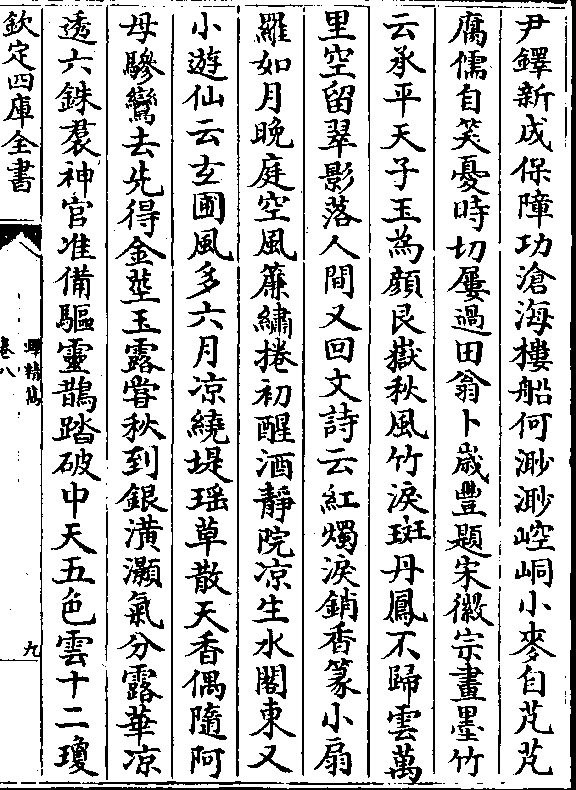 尹鐸新成保障功滄海樓船何渺渺崆峒小麥自芃芃
腐儒自笑憂時切屢過田翁卜歲豐題宋徽宗畫墨竹
云承平天子玉為顔艮嶽秋風竹淚斑丹鳳不歸雲萬
里空留翠影落人間又回文詩云紅燭淚銷香篆小扇
羅如月晚庭空風簾繡捲初醒酒靜院凉生水閣東又
小遊仙云玄圃風多六月凉繞堤瑶草散天香偶隨阿
母驂鸞去先得金莖玉露嘗秋到銀潢灝氣分露華凉
透六銖裠神官准備驅靈鵲踏破中天五色雲十二瓊
欽定四庫全書
卷八
九